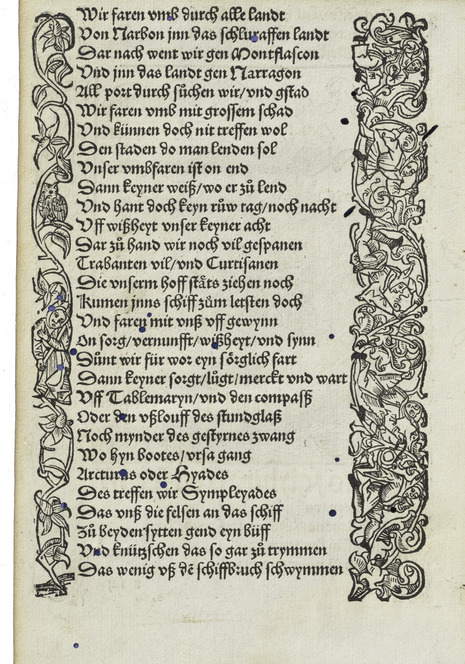 Wir faren vmb durch alle landt
Von Narbon jnn das schluraffen landt
Dar nach went wir gen Montflascon
Vnd jnn das landt gen Narragon
All port durch sůchen wir/vnd gstad
Wir faren vmb mit grossem schad
Vnd künnen doch nit treffen wol
Den staden do man lenden sol
Vnser vmbfaren ist on end
Dann keyner weiß/wo er zů lend
Vnd hant doch keyn růw tag/noch nacht
Vff wißheyt vnser keyner acht
Dar zů hand wir noch vil gespanen
Trabanten vil/vnd Curtisanen
Die vnserm hoff stäts ziehen noch
Kumen jnns schiff zům letsten doch
Vnd faren mit vnß vff gewynn
On sorg/vernunfft/wißheyt/vnd synn
Sünt wir für wor eyn sörglich fart
Dann keyner sorgt/lůgt/merckt vnd wart
Vff Tablemaryn/vnd den compasß
Oder den vßlouff des stundglaß
Noch mynder des gestyrnes zwang
Wo hyn bootes/vrsa gang
Arcturus oder Hyades
Des treffen wir Sympleyades
Das vnß die felsen an das schiff
Zů beyden sytten gend eyn büff
Vnd knützschen das so gar zů trymmen
Das wenig vß dē schiffbruch schwymmen